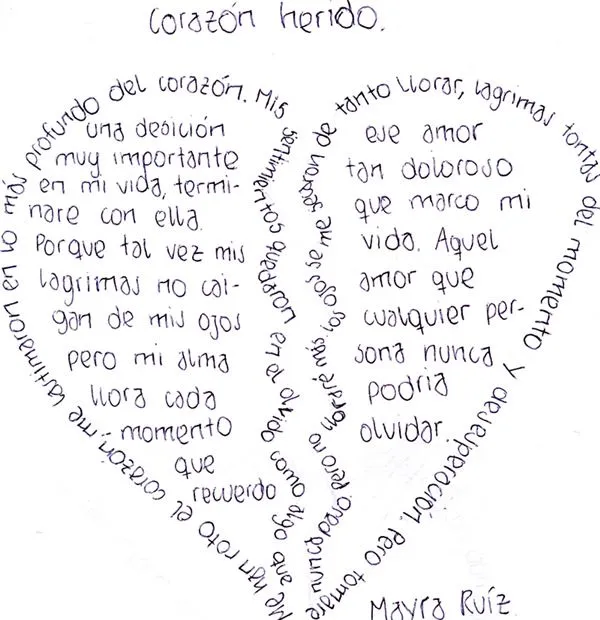 Corazón herido.
Me han roto el corazón; me lastimaron en lo más profundo del corazón. Mis
que en la olvido como algo que
nunca pero no ojos me de tanto llorar, lagrimas tontas del momento y desesperación. Pero tomare
una desición
muy importante
en mi vida, termi-
nare con ella.
Porque tal vez mis
lagrimas no cai-
gan de mis ojos
pero mi alma
llora cada
momento
que
recuerdo
ese amor
tan doloroso
que marco mi
vida. Aquel
amor que
cualquier per-
sona nunca
podria
olvidar.
Mayra Ruíz.